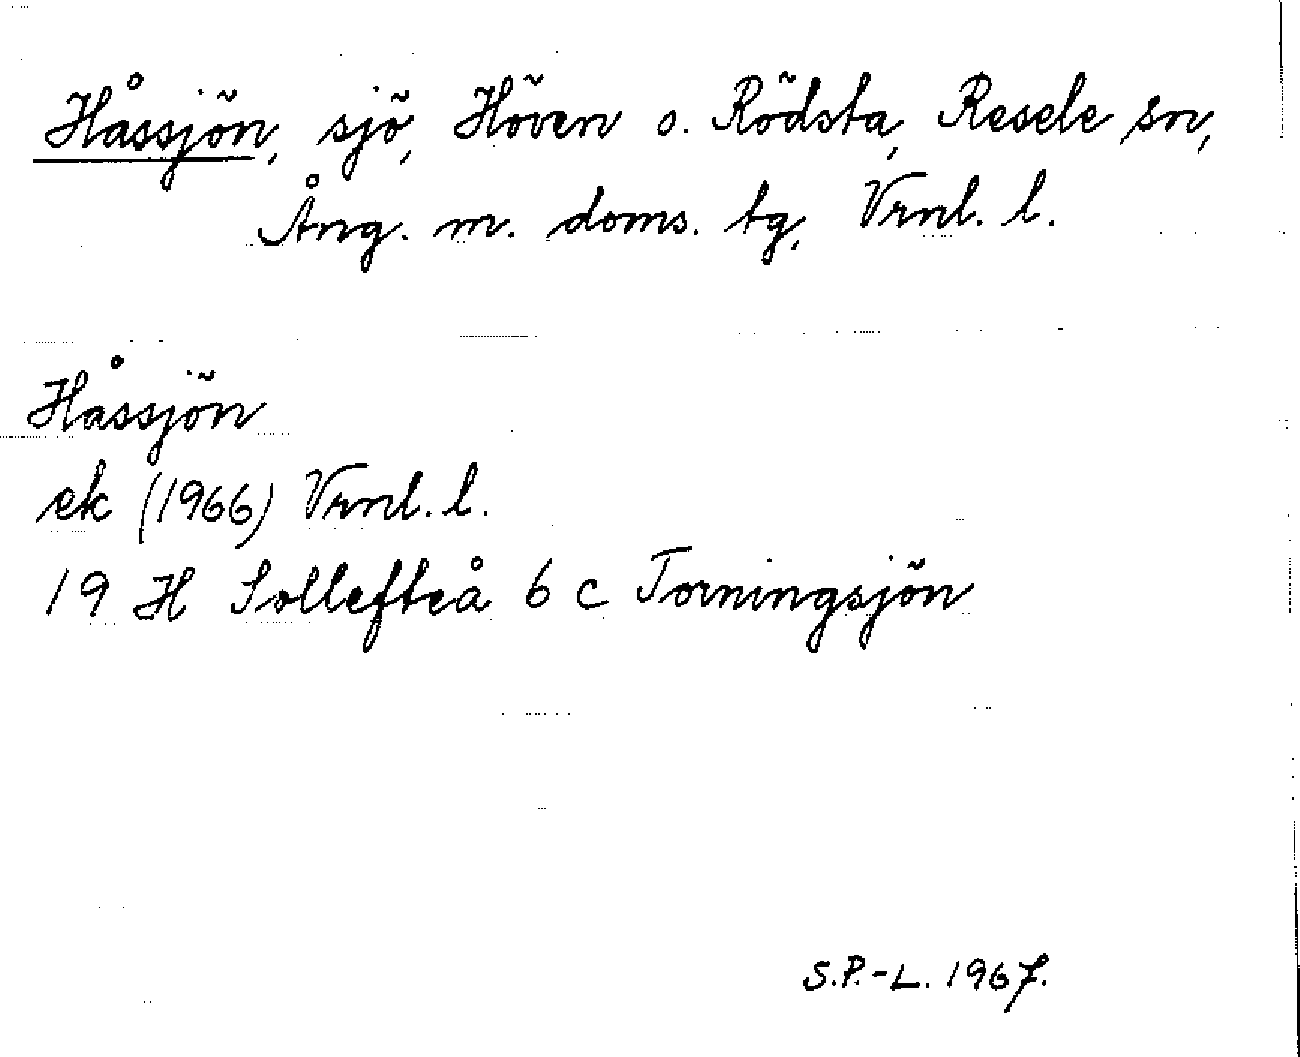 Håssjön, sjö, Höven o. Rödsta, Resele sn,
Ång. m. doms. tg, Vrnl. l.
Håssjön
ek (1966) Vrnl. l.
19 H Sollefteå 6 c Torningsjön
S.P.-L. 1967.